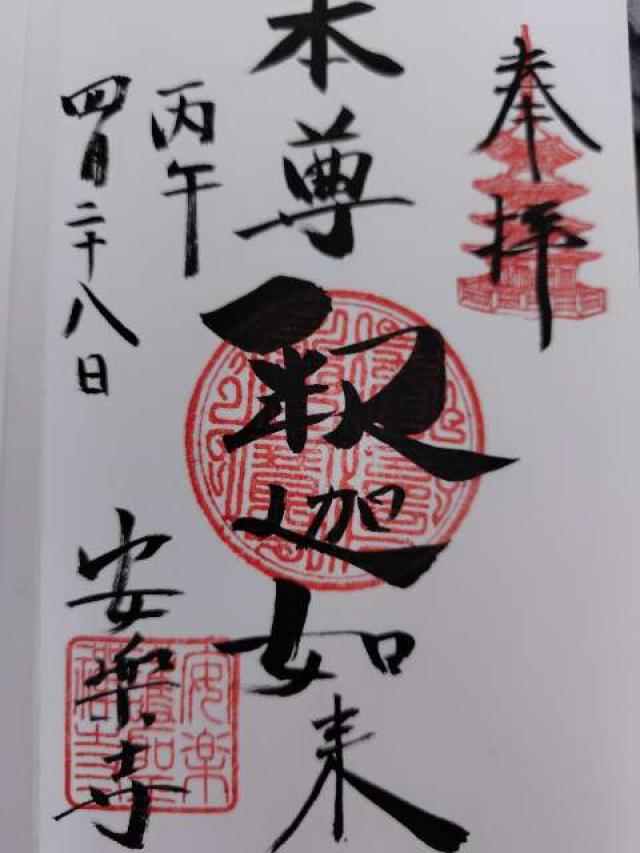 奉拝
本尊
釈迦如来
丙午
四月二十八日
安楽寺